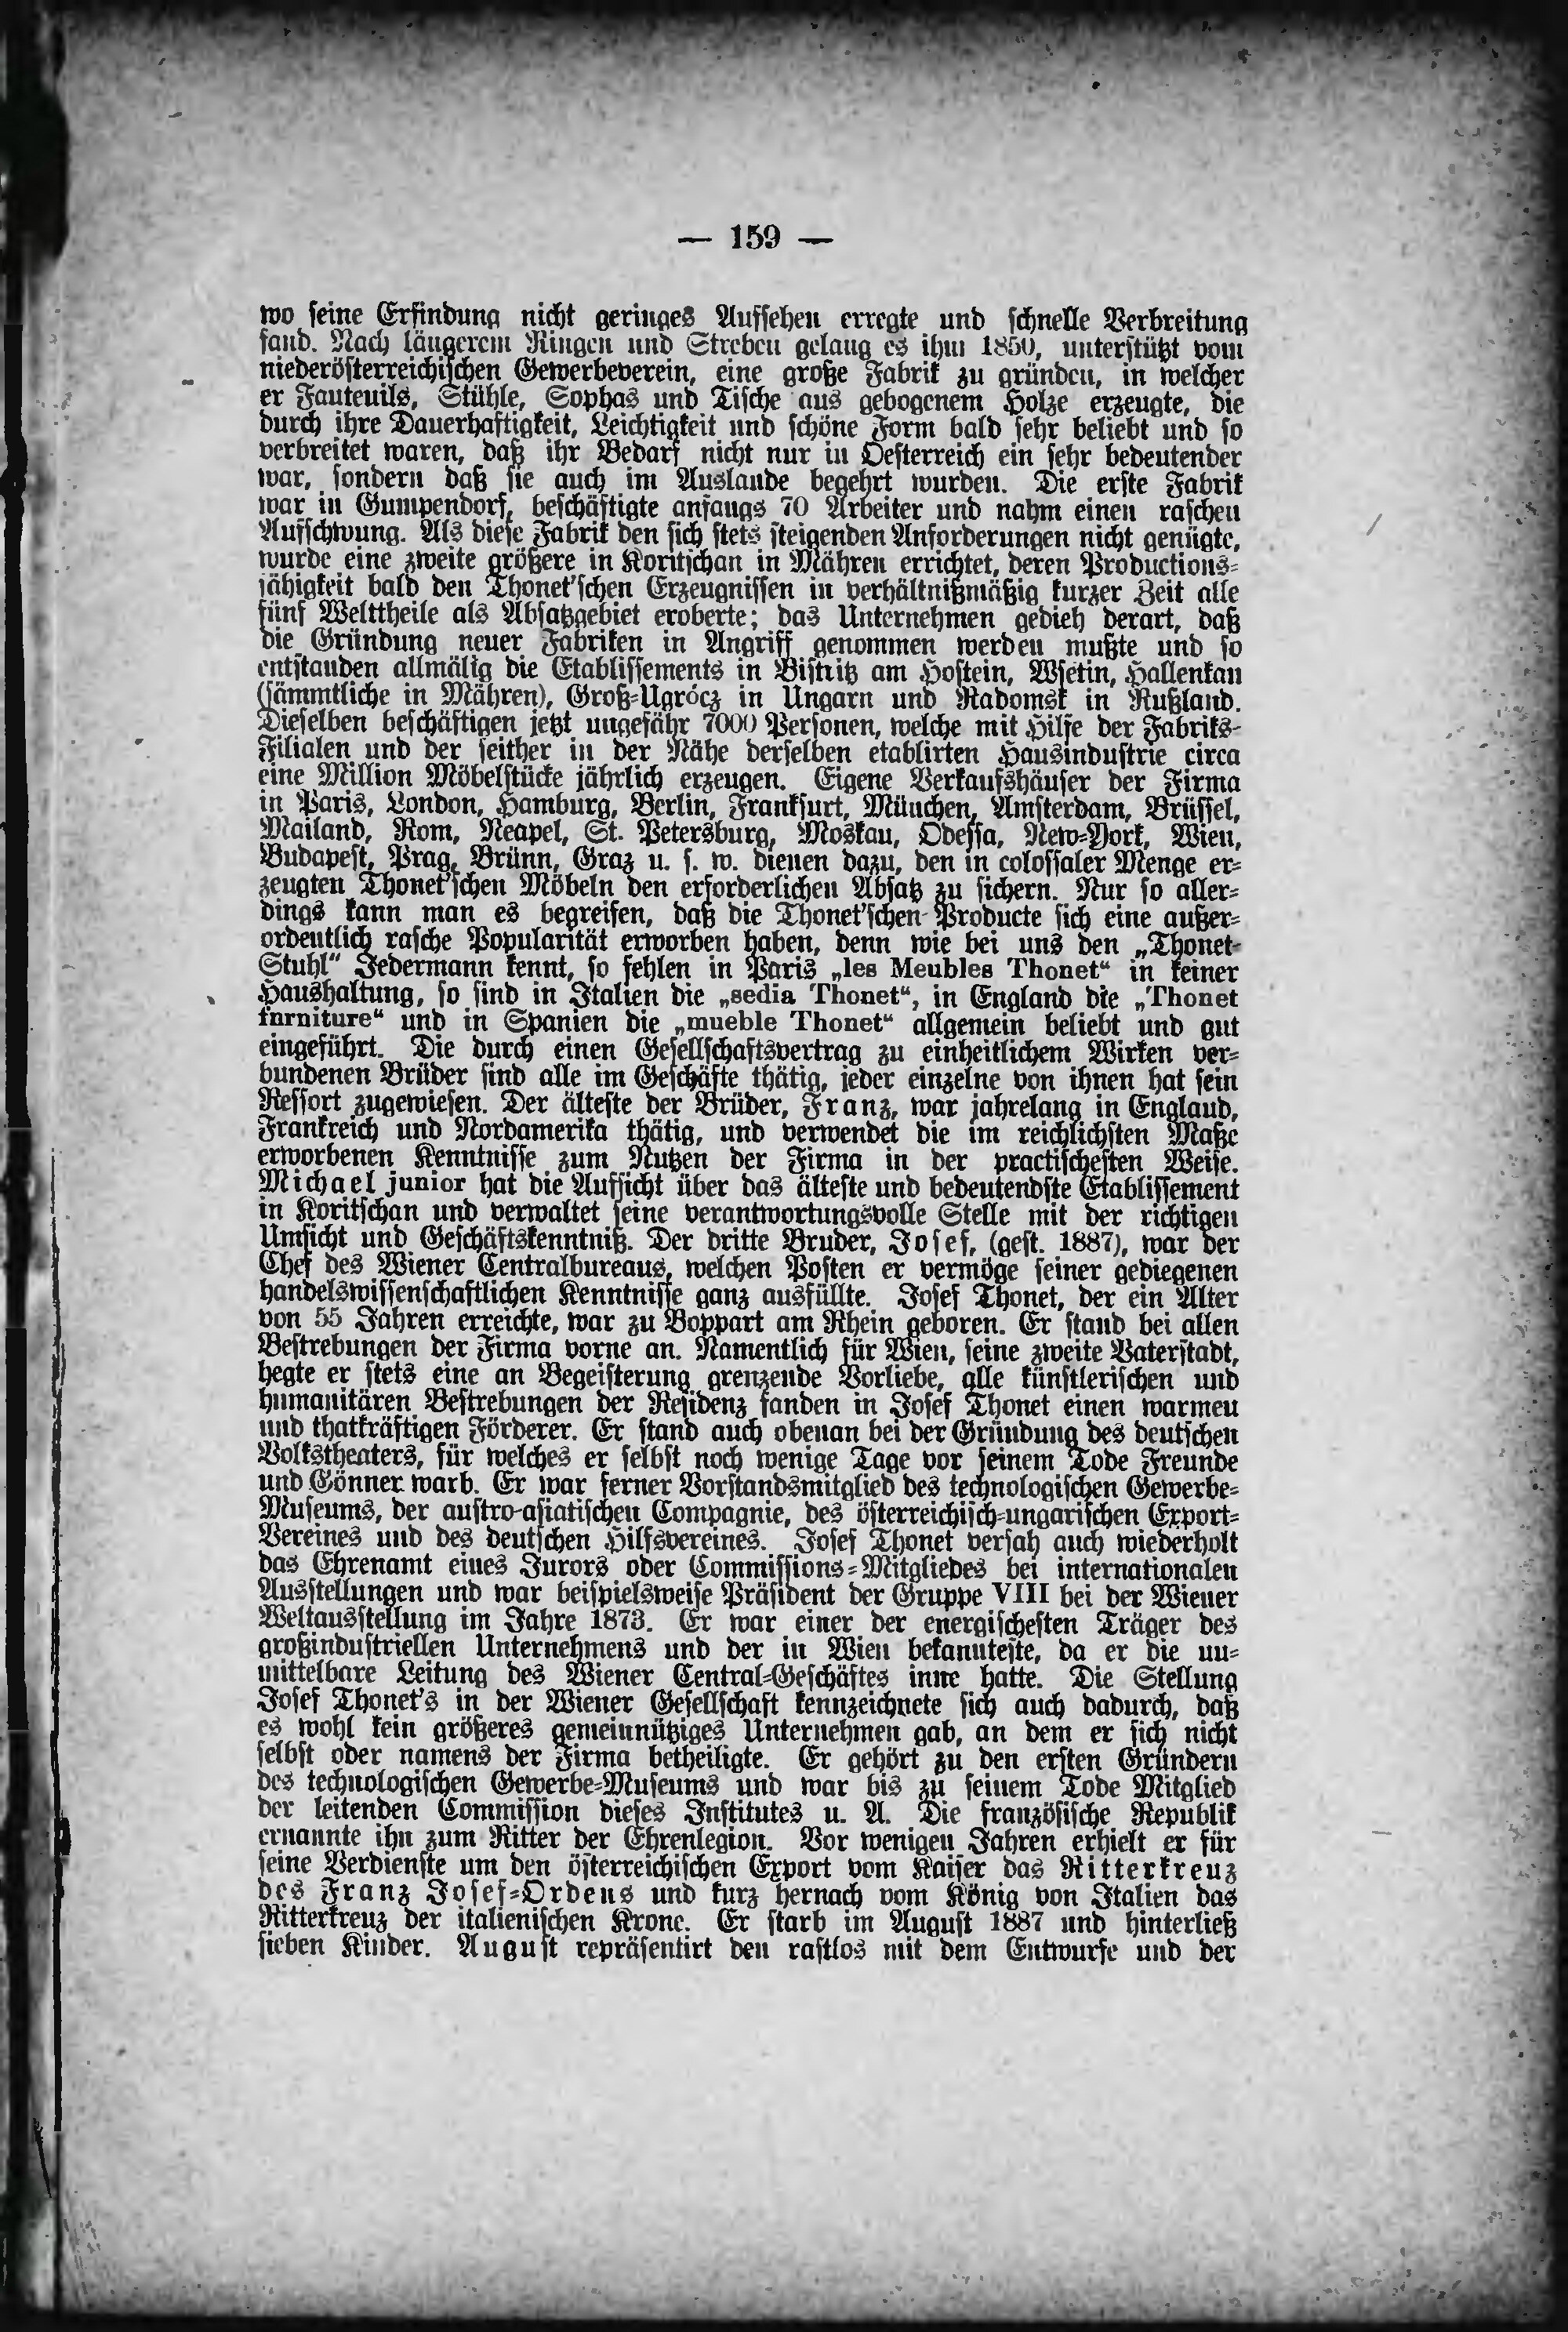 — 159 —
wo seine Erfindung nicht geringes Aufsehen erregte und schnelle Verbreitung
fand. Nach längerem Ringen und Streben gelang es ihm 1850, unterstützt vom
niederösterreichischen Gewerbeverein, eine große Fabrik zu gründen, in welcher
er Fauteuils, Stühle, Sophas und Tische aus gebogenem Holze erzeugte, die
durch ihre Dauerhaftigkeit, Leichtigkeit und schöne Form bald sehr beliebt und so
verbreitet waren, daß ihr Bedarf nicht nur in Oesterreich ein sehr bedeutender
war, sondern daß sie auch im Auslande begehrt wurden. Die erste Fabrik
war in Gumpendorf, beschäftigte anfangs 70 Arbeiter und nahm einen raschen
Aufschwung. Als diese Fabrik den sich stets steigenden Anforderungen nicht genügte,
wurde eine zweite größere in Koritschan in Mähren errichtet, deren Productions-
fähigkeit bald den Thonet'schen Erzeugnissen in verhältnißmäßig kurzer Zeit alle
fünf Welttheile als Absatzgebiet eroberte; das Unternehmen gedieh derart, daß
die Gründung neuer Fabriken in Angriff genommen werden mußte und so
entstanden allmälig die Etablissements in Bistritz am Hostein, Wsetin, Hallenkau
(sämmtliche in Mähren), Groß-Ugrócz in Ungarn und Radomsk in Rußland.
Dieselben beschäftigen jetzt ungefähr 7000 Personen, welche mit Hilfe der Fabriks-
Filialen und der seither in der Nähe derselben etablirten Hausindustrie circa
eine Million Möbelstücke jährlich erzeugen. Eigene Verkaufshäuser der Firma
in Paris, London, Hamburg, Berlin, Frankfurt, München, Amsterdam, Brüssel,
Mailand, Rom, Neapel, St. Petersburg, Moskau, Odessa, New-York, Wien,
Budapest, Prag, Brünn, Graz u. s. w. dienen dazu, den in colossaler Menge er-
zeugten Thonet'schen Möbeln den erforderlichen Absatz zu sichern. Nur so aller-
dings kann man es begreifen, daß die Thonet'schen Producte sich eine außer-
ordentlich rasche Popularität erworben haben, denn wie bei uns den „Thonet-
Stuhl“ Jedermann kennt, so fehlen in Paris „les Meubles Thonet“ in keiner
Haushaltung, so sind in Italien die „sedia Thonet“, in England die „Thonet
furniture“ und in Spanien die „mueble Thonet“ allgemein beliebt und gut
eingeführt. Die durch einen Gesellschaftsvertrag zu einheitlichem Wirken ver-
bundenen Brüder sind alle im Geschäfte thätig, jeder einzelne von ihnen hat sein
Ressort zugewiesen. Der älteste der Brüder, Franz, war jahrelang in England,
Frankreich und Nordamerika thätig, und verwendet die im reichlichsten Maße
erworbenen Kenntnisse zum Nutzen der Firma in der practischesten Weise.
Michael junior hat die Aufsicht über das älteste und bedeutendste Etablissement
in Koritschan und verwaltet seine verantwortungsvolle Stelle mit der richtigen
Umsicht und Geschäftskenntniß. Der dritte Bruder, Josef, (gest. 1887), war der
Chef des Wiener Centralbureaus, welchen Posten er vermöge seiner gediegenen
handelswissenschaftlichen Kenntnisse ganz ausfüllte. Josef Thonet, der ein Alter
von 55 Jahren erreichte, war zu Boppart am Rhein geboren. Er stand bei allen
Bestrebungen der Firma vorne an. Namentlich für Wien, seine zweite Vaterstadt,
hegte er stets eine an Begeisterung grenzende Vorliebe, alle künstlerischen und
humanitären Bestrebungen der Residenz fanden in Josef Thonet einen warmen
und thatkräftigen Förderer. Er stand auch obenan bei der Gründung des deutschen
Volkstheaters, für welches er selbst noch wenige Tage vor seinem Tode Freunde
und Gönner warb. Er war ferner Vorstandsmitglied des technologischen Gewerbe-
Museums, der austro-asiatischen Compagnie, des österreichisch-ungarischen Export-
Vereines und des deutschen Hilfsvereines. Josef Thonet versah auch wiederholt
das Ehrenamt eines Jurors oder Commissions-Mitgliedes bei internationalen
Ausstellungen und war beispielsweise Präsident der Gruppe VIII bei der Wiener
Weltausstellung im Jahre 1873. Er war einer der energischesten Träger des
großindustriellen Unternehmens und der in Wien bekannteste, da er die un-
mittelbare Leitung des Wiener Central-Geschäftes inne hatte. Die Stellung
Josef Thonet's in der Wiener Gesellschaft kennzeichnete sich auch dadurch, daß
es wohl kein größeres gemeinnütziges Unternehmen gab, an dem er sich nicht
selbst oder namens der Firma betheiligte. Er gehört zu den ersten Gründern
des technologischen Gewerbe-Museums und war bis zu seinem Tode Mitglied
der leitenden Commission dieses Institutes u. A. Die französische Republik
ernannte ihn zum Ritter der Ehrenlegion. Vor wenigen Jahren erhielt er für
seine Verdienste um den österreichischen Export vom Kaiser das Ritterkreuz
des Franz Josef-Ordens und kurz hernach vom König von Italien das
Ritterkreuz der italienischen Krone. Er starb im August 1887 und hinterließ
sieben Kinder. August repräsentirt den rastlos mit dem Entwurfe und der